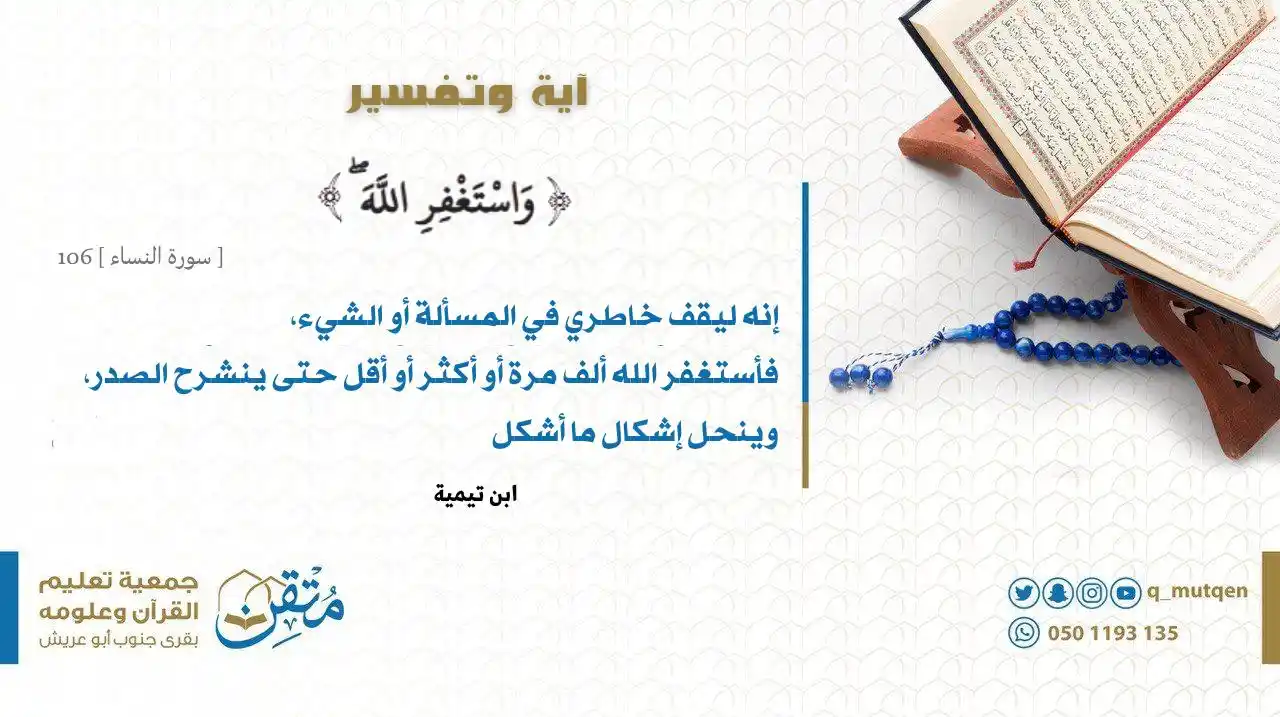 آية وتفسير
﴿ وَاسْتَغْفِرِ اللَّهَ ۖ ﴾
[ سورة النساء ] 106
إنه ليقف خاطري في المسألة أو الشيء،
فأستغفر الله ألف مرة أو أكثر أو أقل حتى ينشرح الصدر،
وينحل إشكال ما أشكل
ابن تيمية
مُتْقِن
جمعية تعليم
القرآن وعلومه
بقرى جنوب أبو عريش
q_mutqen
050 1193 135